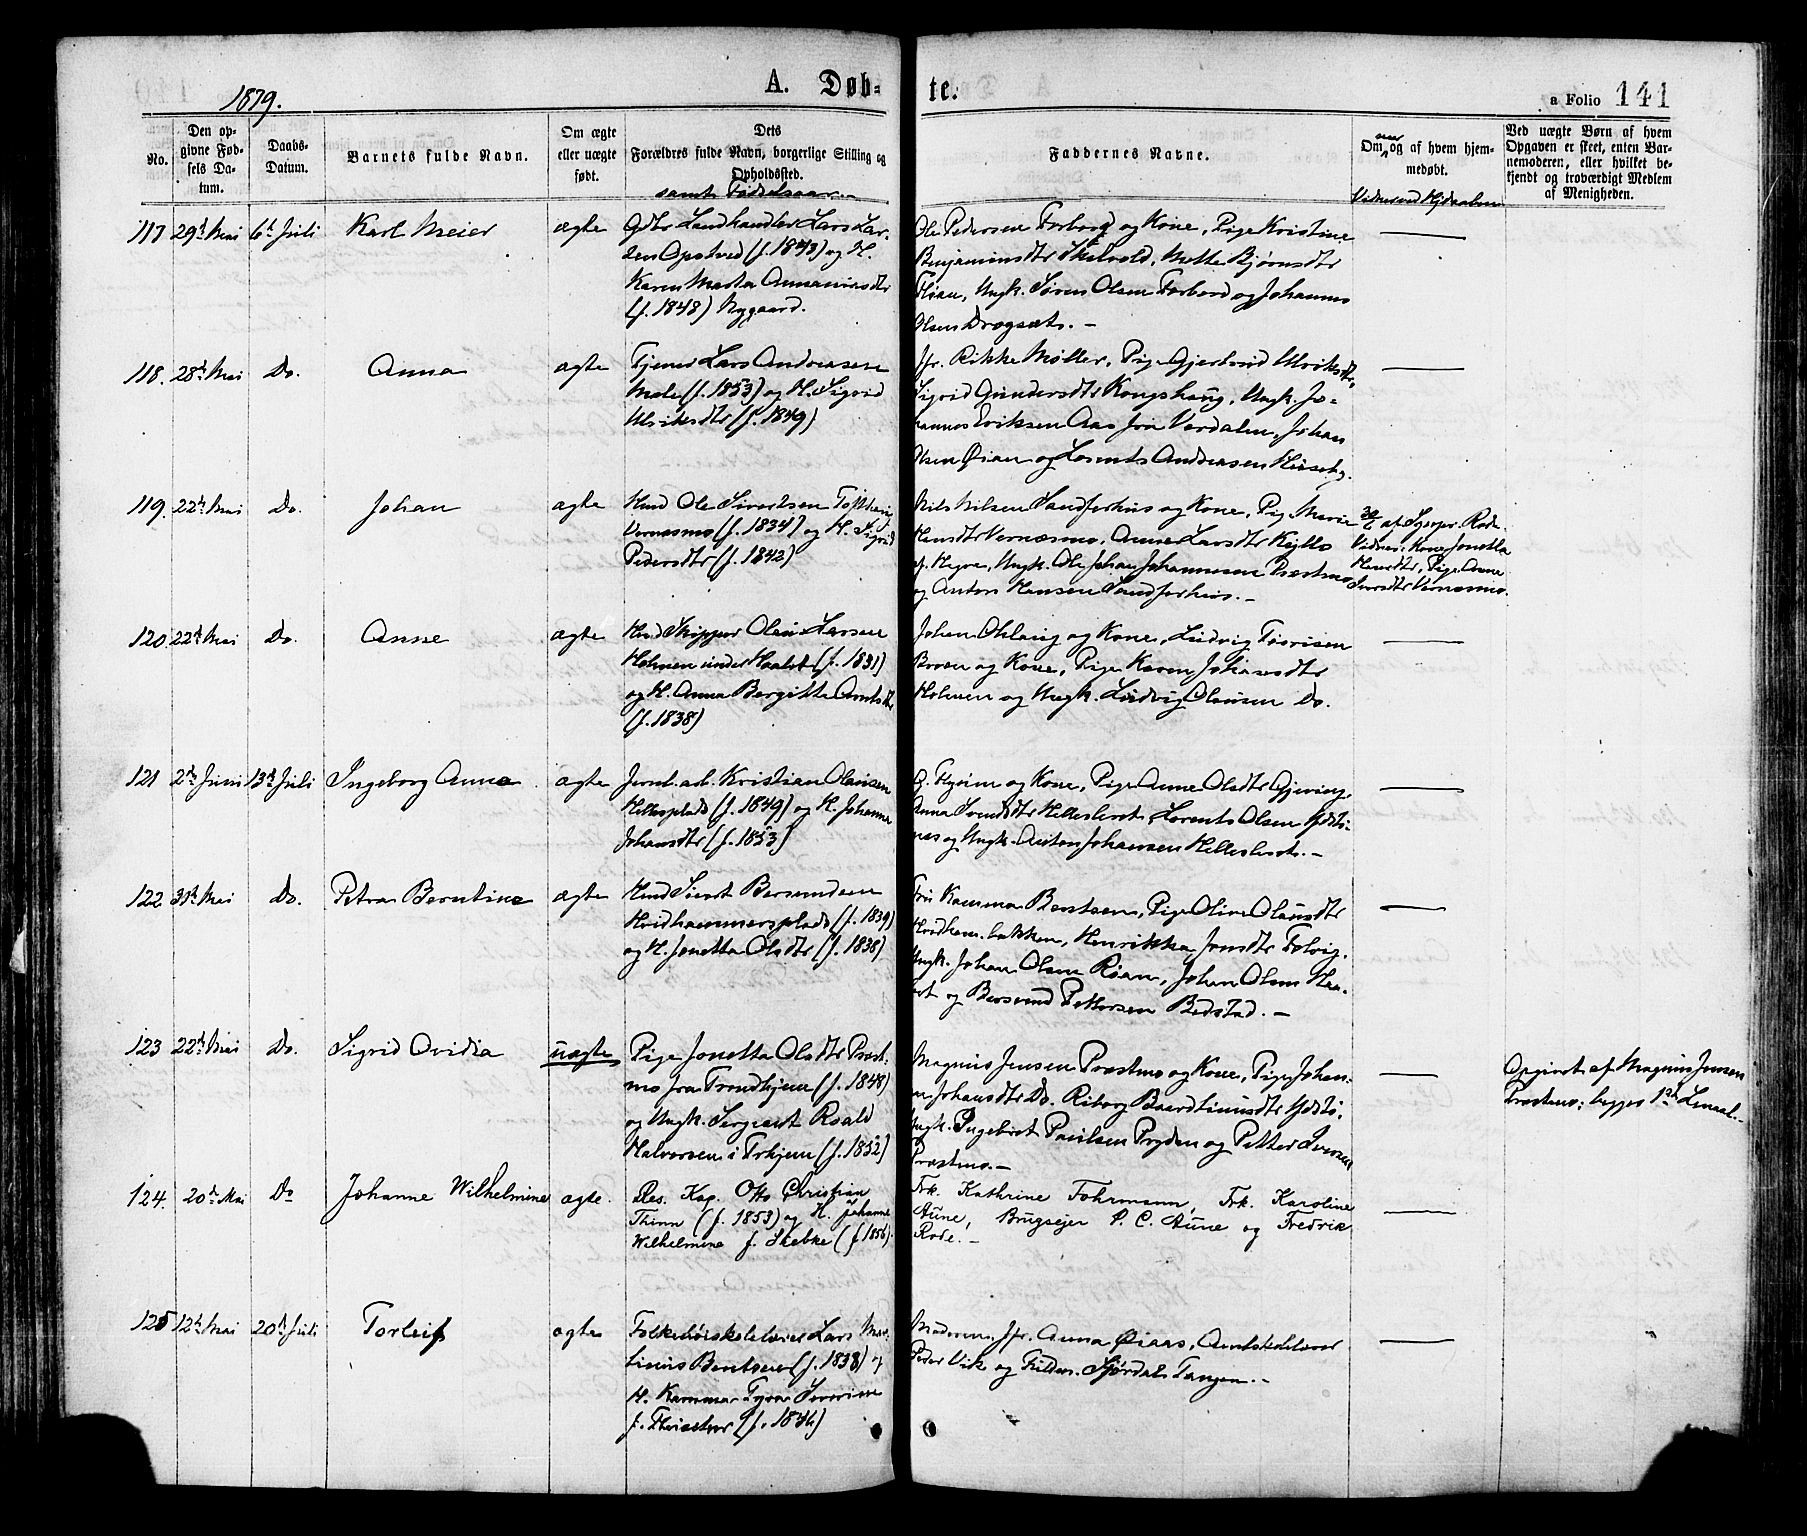 1879.
A. Døb-
te.
a Folio 141
No.
Den op-
givne Fød-
sels Da-
tum.
Daabs-
Datum.
Barnets fulde Navn.
Om ægte
eller uægte
født.
Dets
Forældres fulde Navn, borgerlige Stilling og
Opholdssted.
samt Fødselsaar
Faddernes Navne.
Om, naar og af hvem hjem-
medøbt.
Vidner ved Hjdaaben
Ved uægte Børn af hvem
Opgaven er skeet, enten Bar-
nemoderen, eller hvilket be-
kjendt og troværdigt Medlem
af Menigheden.
117 29de Mai 6te Juli Karl Meier ægte
Gdbr Landhandler Lars Lar-
sen Opstved (f. 1843) og H.
Karen Marta Annaniasdtr
(f. 1848) Nygaard.
Ole Pedersen Forbord og Kone, Pige Kristine
Benjaminsdtr Skelvold, Mette Bjørnsdtr
Floan, Ungk. Søren Olsen Forbord og Johannes
Olsen Dragsæt. —
118. 28de Mai Do. Anna ægte
Tjener Lars Andreasen
Mæle (f. 1853) og H. Sigrid
Ulriksdtr (f. 1849)
Jfr. Rikke Møller, Pige Gjertrud Ulriksdtr,
Sigrid Gundersdtr Kongshaug, Ungk. Jo-
hannes Eriksen Aas fra Verdalen, Johan
Olsen Øian og Lorents Andreasen
119. 22de Mai Do. Johan ægte
Hmd Ole Sivertsen
Vernæsmo (f. 1834) og H. Sigrid
Pedersdtr (f. 1842)
Nils Nilsen Sandferhus og Kone, Pige Marie
Hansdtr Vernæsmo, Anne Larsdtr Kyllo
af Hegre, Ungk. Ole Johan Johannesen Præstmo
og Anton Hansen Sandferhus. —
af Sgpr. Rode.
Vidner: Kone Jonetta
Hansdtr, Pige Anne
Vernæsmo.
120. 22de Mai Do. Anne ægte
Hmd Skipper Olaus Larsen
Holmen under Haalset (f. 1831)
og H. Anna Bergitta Arntsdtr
(f. 1838)
Johan Ohlavig og Kone, Ludvig
og Kone, Pige Karen Johansdtr
Holmen og Ungk. Ludvig Olausen Do.
121 2den Juni 13de Juli Ingeborg Anna ægte
Jernb. arb. Kristian Olausen
Hellesplads (f. 1849) og H. Johanna
Johansdtr (f. 1853)
O. Hejrim og Kone, Pige Anne Olsdtr Gjeving,
Anna Svendsdtr Helleslivet, Lorents Olsen
og Ungk. Anton Johansen —
122 31te Mai Do. Petra Berntine ægte
Hmd Sivert Bersvendsen
Hvidhammersplads (f. 1839)
og H. Jonetta Olsdtr (f. 1838)
Fru Kamma Bentsen, Pige Oline Olausdtr
Hvidham. bakken, Henrikka Jonsdtr Folvig,
Ungk. Johan Olsen Røan, Johan Olsen
og Bersvend Pettersen Bedstad. —
123 22de Mai Do. Sigrid Ovidia uægte
Pige Jonetta Olsdtr Præst-
mo fra Trondhjem (f. 1848)
og Ungk. Sergeant Roald
Halvorsen i Trhjem (f. 1852)
Magnus Jensen Præstmo og Kone, Pige Johan-
Johansdtr Do. Riborg Baardlinusdtr
Ungk. Ingebret Paulsen Pryden og Petter Iversen
Præstmo. —
Opgivet af Magnus Jensen
Præstmo; begges 1ste Leiermaal.
124. 20de Mai Do Johanne Wilhelmine ægte.
Res. Kap. Otto Christian
Thinn (f. 1853) og H. Johanne
Wilhelmine f. Skebke (f 1856).
Frk. Kathrine Fohrmann, Frk. Karoline
Aune, Brugsejer P. C. Aune og Fredrik
Rode. —
125 12te Mai 20de Juli Torleif ægte
Folkehøiskolelærer Lars Mar-
tinius Bentsen (f. 1838) og
H. Kamma Tyra Severine
f. (f. 1846)
Moderen, Jfr. Anna Øiaas, Amtskolelærer
Peder Vik og Fuldm. Stjørdal Tangen. —